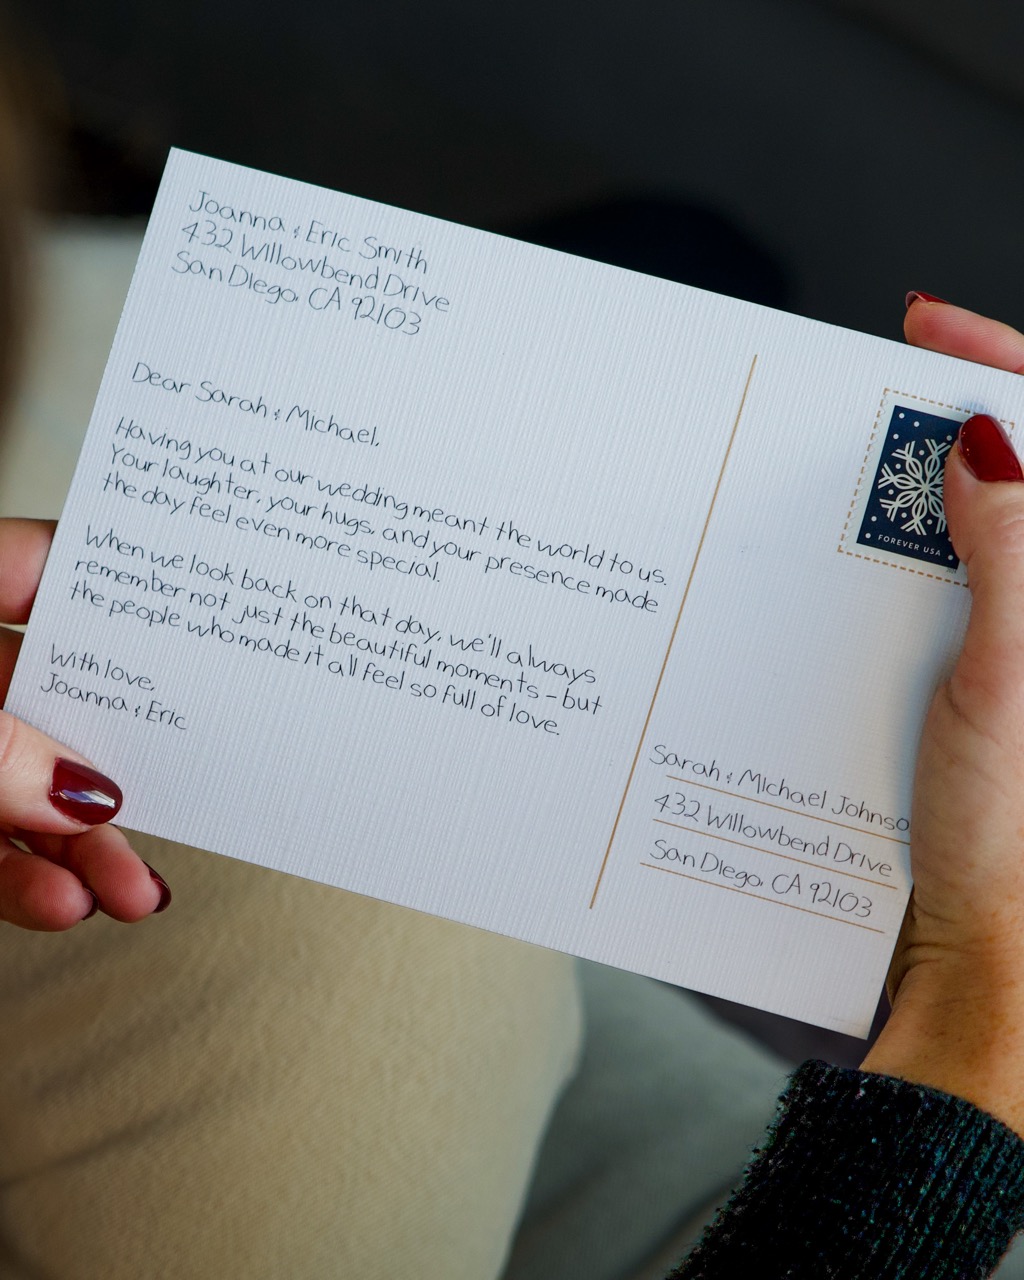 Joanna & Eric Smith
432 Willowbend Drive
San Diego, CA 92103
Dear Sarah & Michael,
Having you at our wedding meant the world to us.
Your laughter, your hugs, and your presence made
the day feel even more special.
When we look back on that day, we'll always
remember not just the beautiful moments – but
the people who made it all feel so full of love.
With love,
Joanna & Eric
FOREVER USA
Sarah & Michael Johnso
432 Willowbend Drive
San Diego, CA 92103